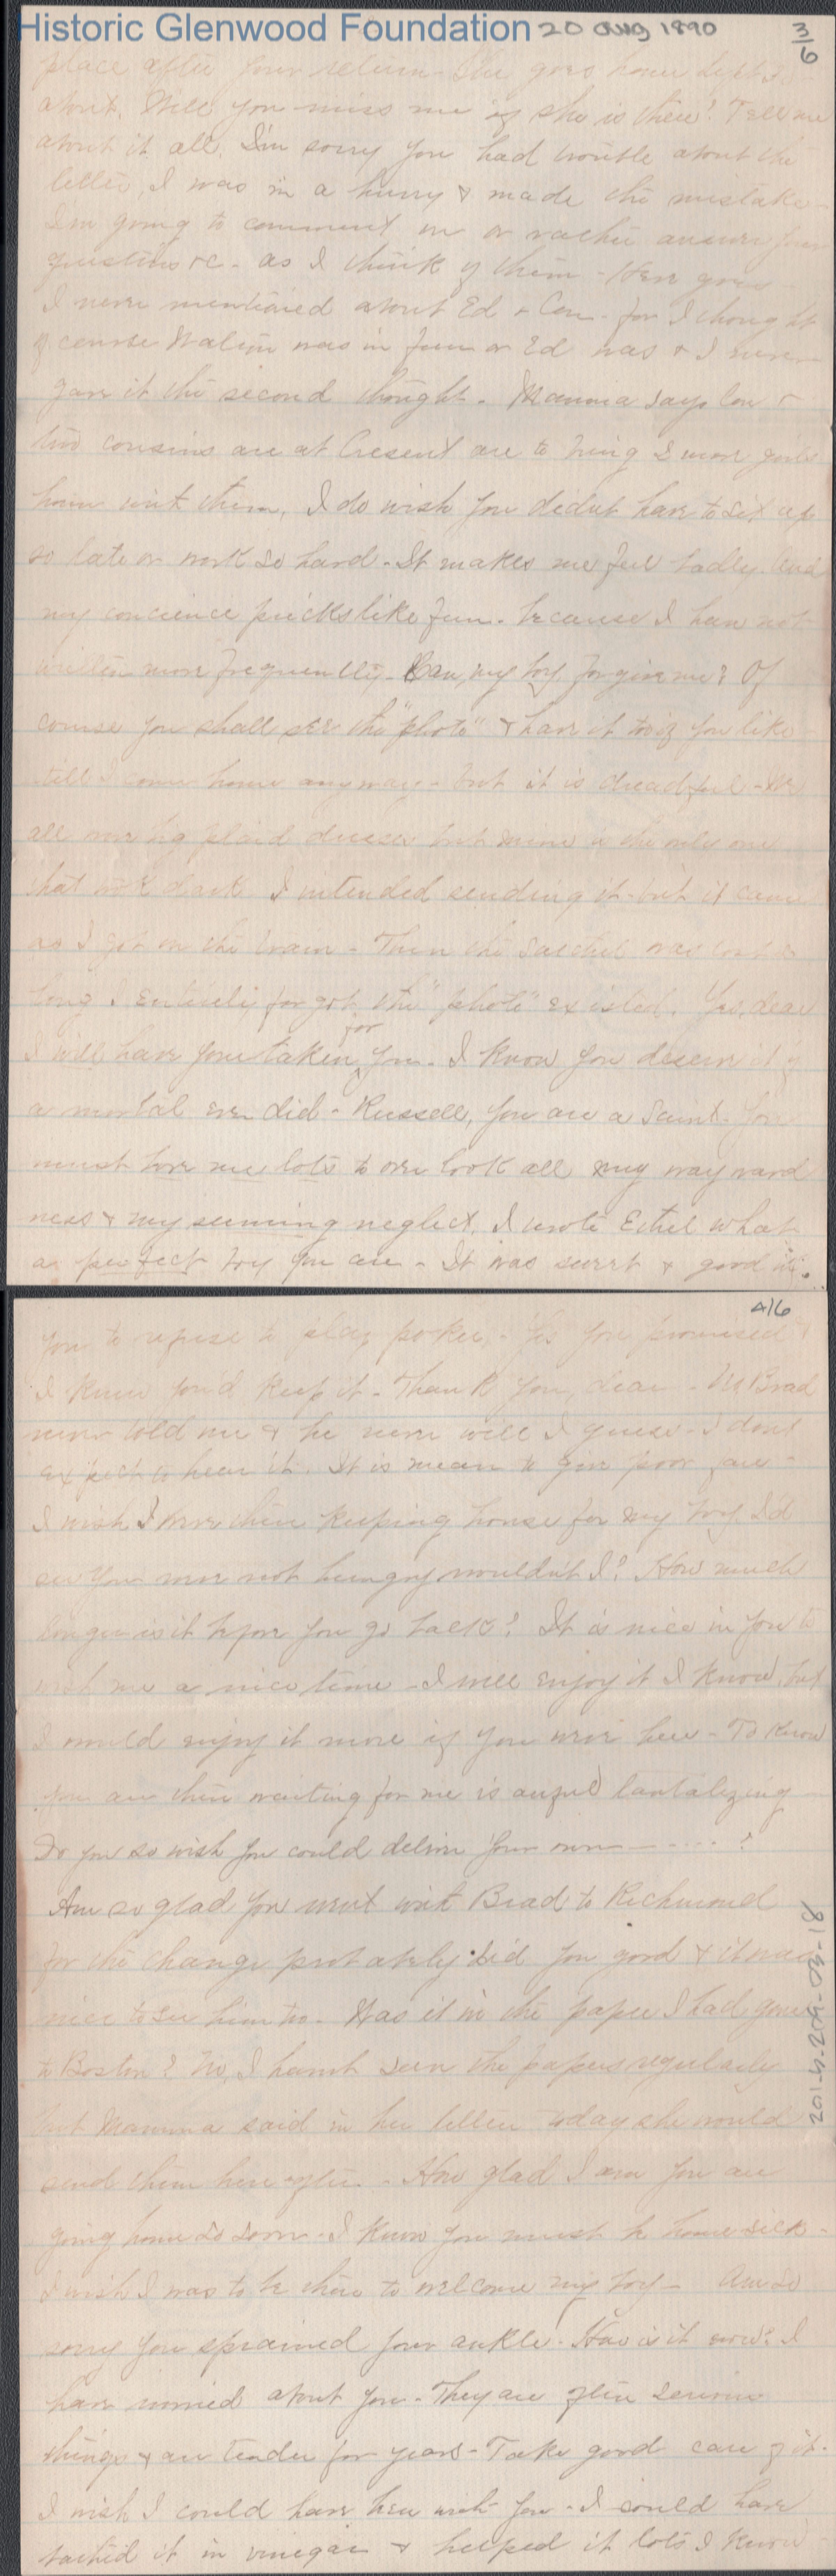 Historic Glenwood Foundation 20 Aug 1890 3/6
place after your return. She goes home Sept
about. Will you miss me if she is there? Tell me
about it all. I'm sorry you had trouble about the
letter, I was in a hurry & made the mistake.
I'm going to comment on or rather answer your
questions &c - as I think of them - Here goes -
I never mentioned about Ed & Cou - for I thought
of course was in fun or Ed was & I never
gave it the second thought. Mamma says Cou &
two cousins are at Cresent are to bring 2 more girls
home with them, I do wish you didnt have to sit up
so late or work so hard - It makes me feel badly. And
my concience pricks like fun - because I have not
written more frequently - Can my boy forgive me? Of
course you shall see the "photo" & have it too if you like
till I come home anyway - but it is dreadful - We
all wore big plaid dresses but mine is the only one
that took dark I intended sending it - but it came
as I got on the train - Then the satchel was lost so
long I entirely forgot the "photo" existed. Yes, dear
for
I will have some taken you - I know you deserve it if
a mortal ever did - Russell, you are a Saint. You
must love me lots to over look all my way ward
ness & my seeming neglect. I wrote Ethel what
a perfect boy you are - It was sweet & good in
4/6
you to refuse to play poker - Yes you promised &
I knew you'd keep it - Thank you, dear - Mr Brad
never told me & he never will I guess - I dont
expect to hear it. It is mean to give poor fare -
I wish I were there keeping house for my boy. I'd
see you were not hungry wouldn't I? How much
longer is it before you go back? It is nice in you to
wish me a nice time - I will enjoy it I know, but
I would enjoy it more if you were here - To know
you are there waiting for me is awful tantalizing
Do you so wish you could deliver your own - ....?
Am so glad you went with Brad to Richmond
for the change probably did you good & it was
nice to see him too. Was it in the paper I had gone
to Boston? No, I havnt seen the papers regularly
but Mamma said in her letter today she would
send them here after. - How glad I am you are
going home so soon - I know you must be home sick -
I wish I was to be there to welcome my boy - Am so
sorry you sprained your ankle. How is it now? I
have worried about you - They are often serious
things & are tender for years - Take good care of it.
I wish I could have been with you - I could have
bathed it in vinegar & helped it lots I know
2014-209-03-18